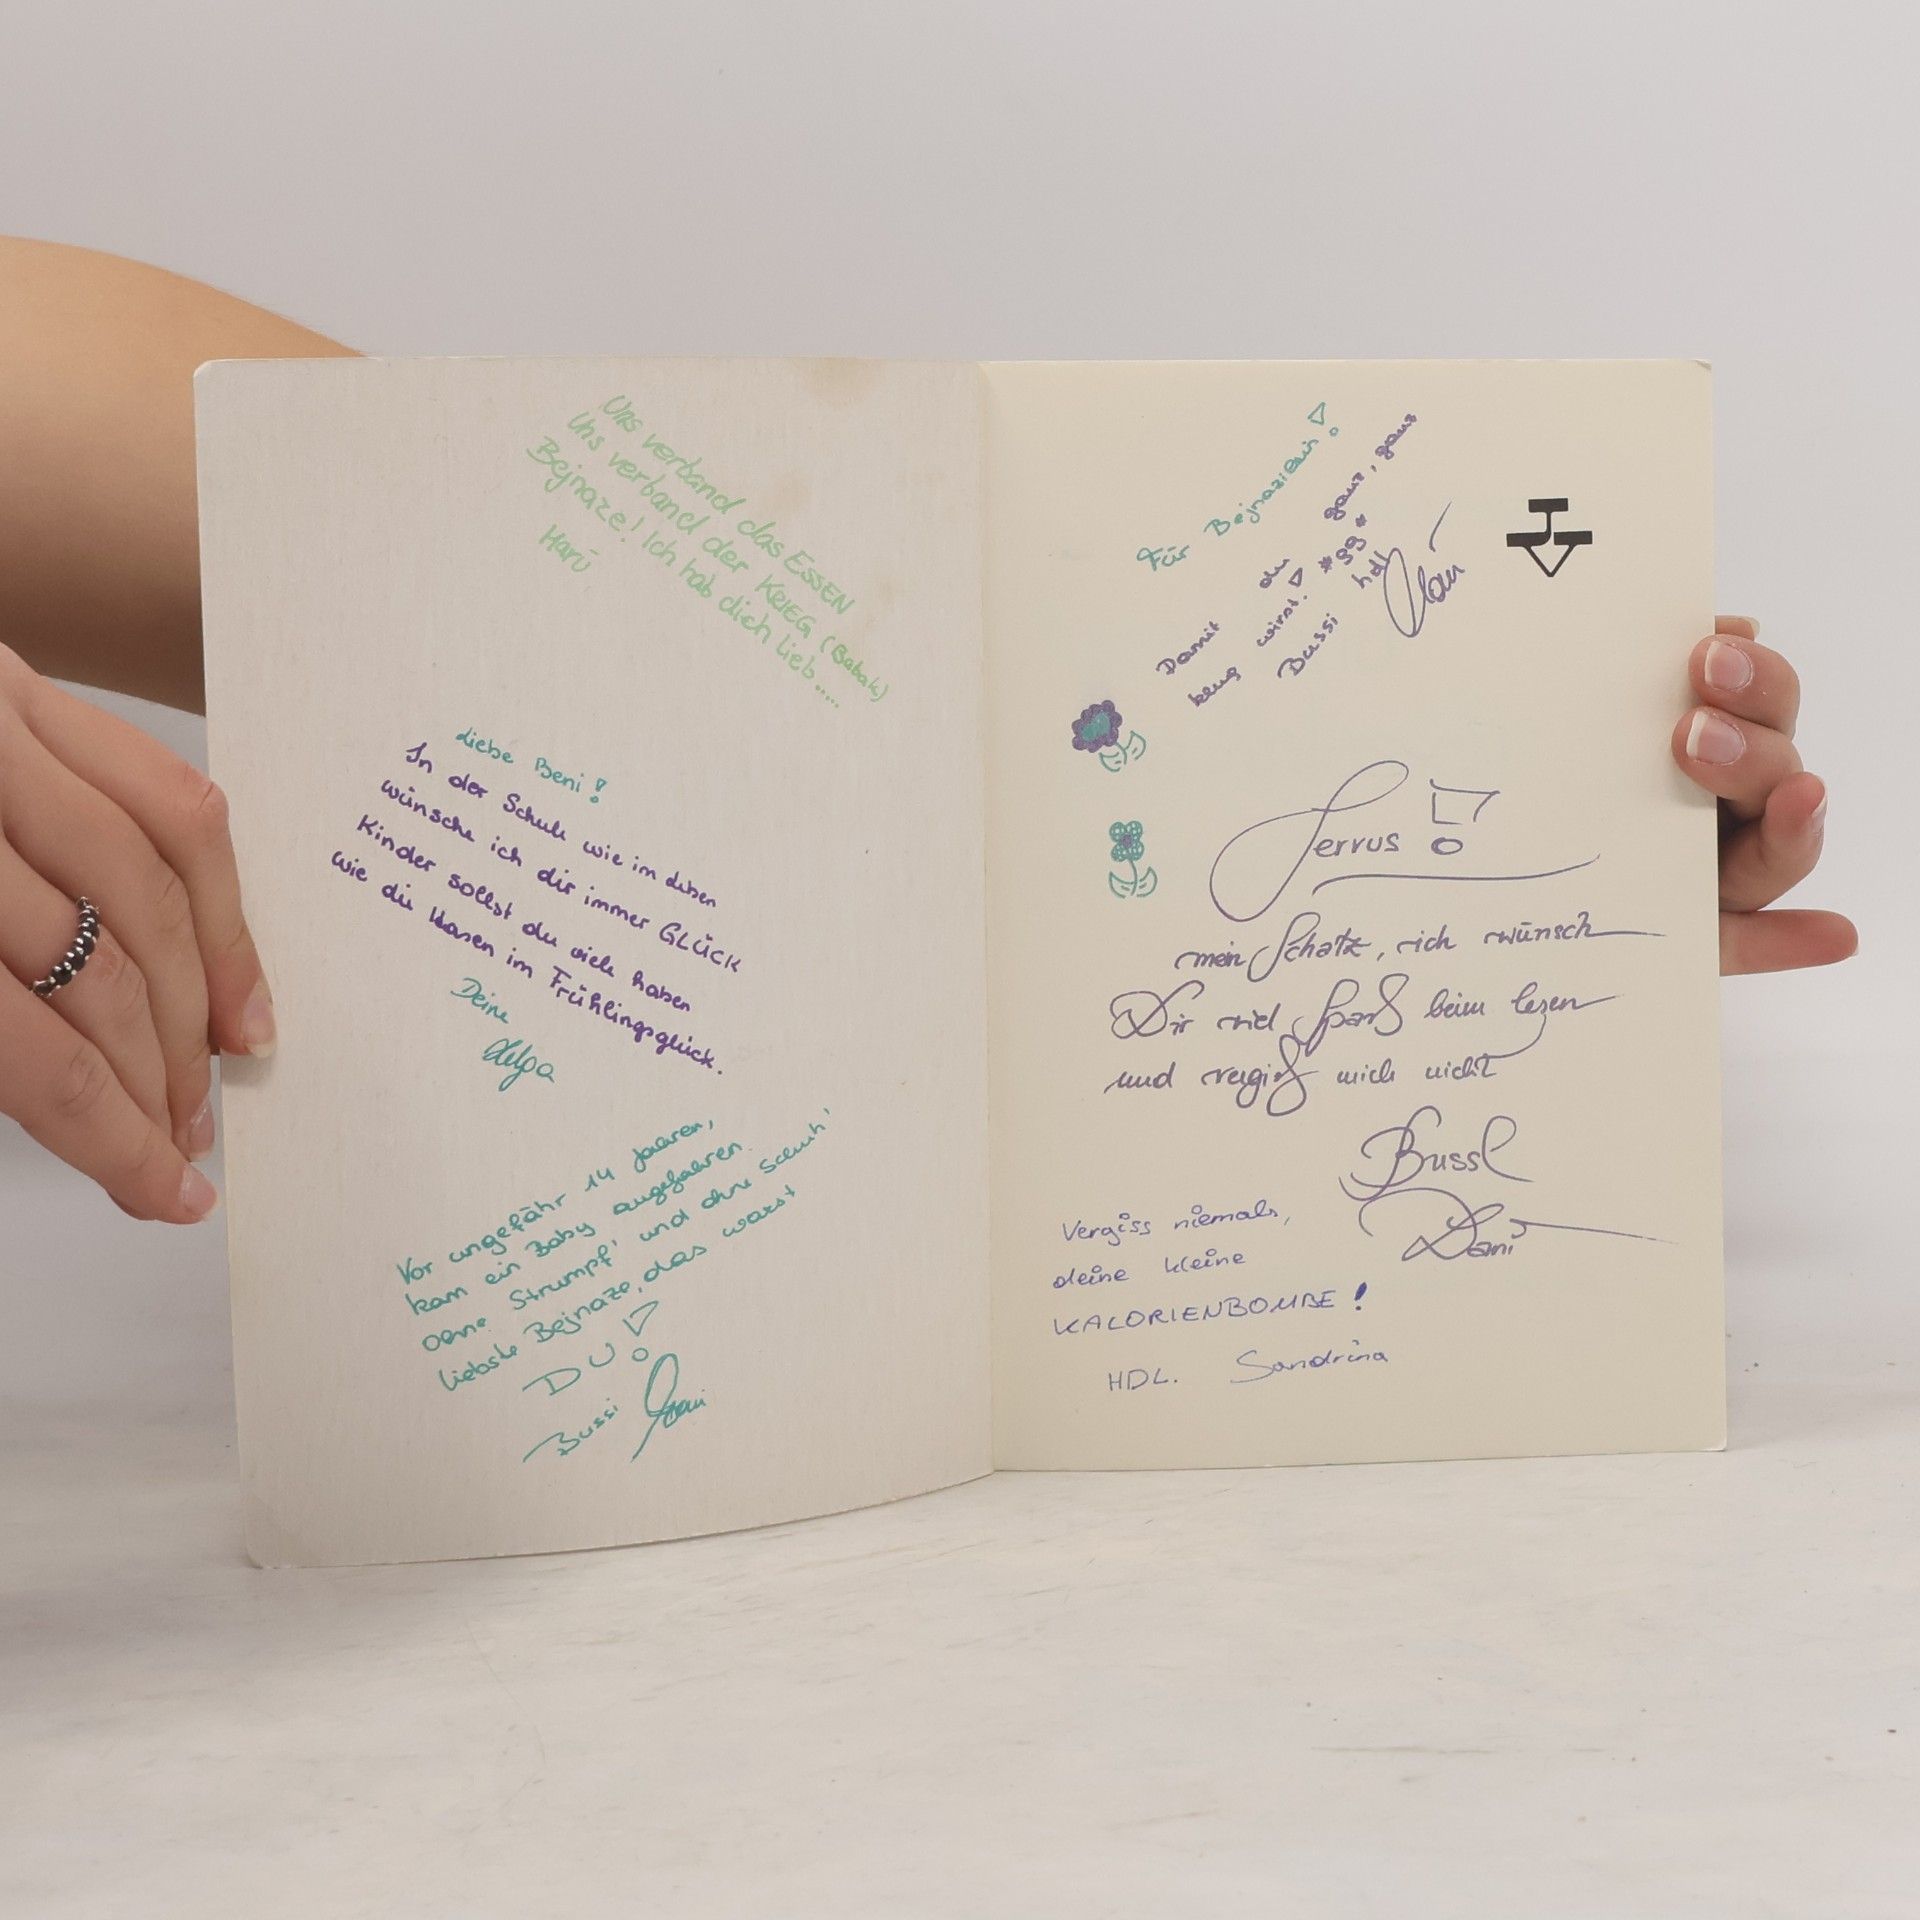 Uns verband das ESSEN
Uns verband der KRIEG (Babak)
Bejnaze! Ich hab dich lieb....
Harū
Liebe Beni!
In der Schule wie im Leben
wünsche ich dir immer GLÜCK
Kinder sollst du viele haben
wie die Hasen im Frühlingsglück.
Deine
Helga
Vor ungefähr 14 Jahren,
kam ein Baby angefahren.
ohne Strumpf' und ohne Schuh'
liebste Bejnaze, das warst
DU!
Bussi
Für Bejnaziehi!
Damit du ganz, ganz
klug wirst! *gg*
Bussi hdl
Servus!
mein Schatz, ich wünsch
Dir viel Spaß beim lesen
und vergiß mich nicht
Bussl
Dani
Vergiss niemals,
deine kleine
KALORIENBOMBE!
HDL. Sandrina